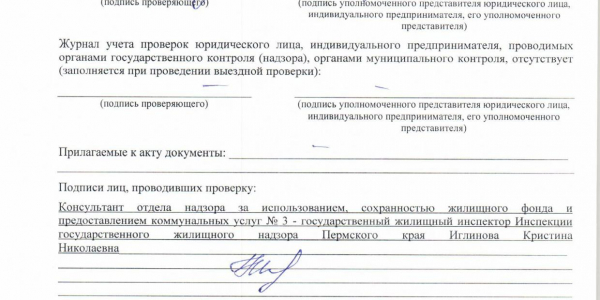 (подпись проверяющего) (подпись уполномоченного представителя юридического лица,
индивидуального предпринимателя, его уполномоченного
представителя)
Журнал учета проверок юридического лица, индивидуального предпринимателя, проводимых
органами государственного контроля (надзора), органами муниципального контроля, отсутствует
(заполняется при проведении выездной проверки):
(подпись проверяющего) (подпись уполномоченного представителя юридического лица,
индивидуального предпринимателя, его уполномоченного
представителя)
Прилагаемые к акту документы:
Подписи лиц, проводивших проверку:
Консультант отдела надзора за использованием, сохранностью жилищного фонда и
предоставлением коммунальных услуг № 3 - государственный жилищный инспектор Инспекции
государственного жилищного надзора Пермского края Иглинова Кристина
Николаевна